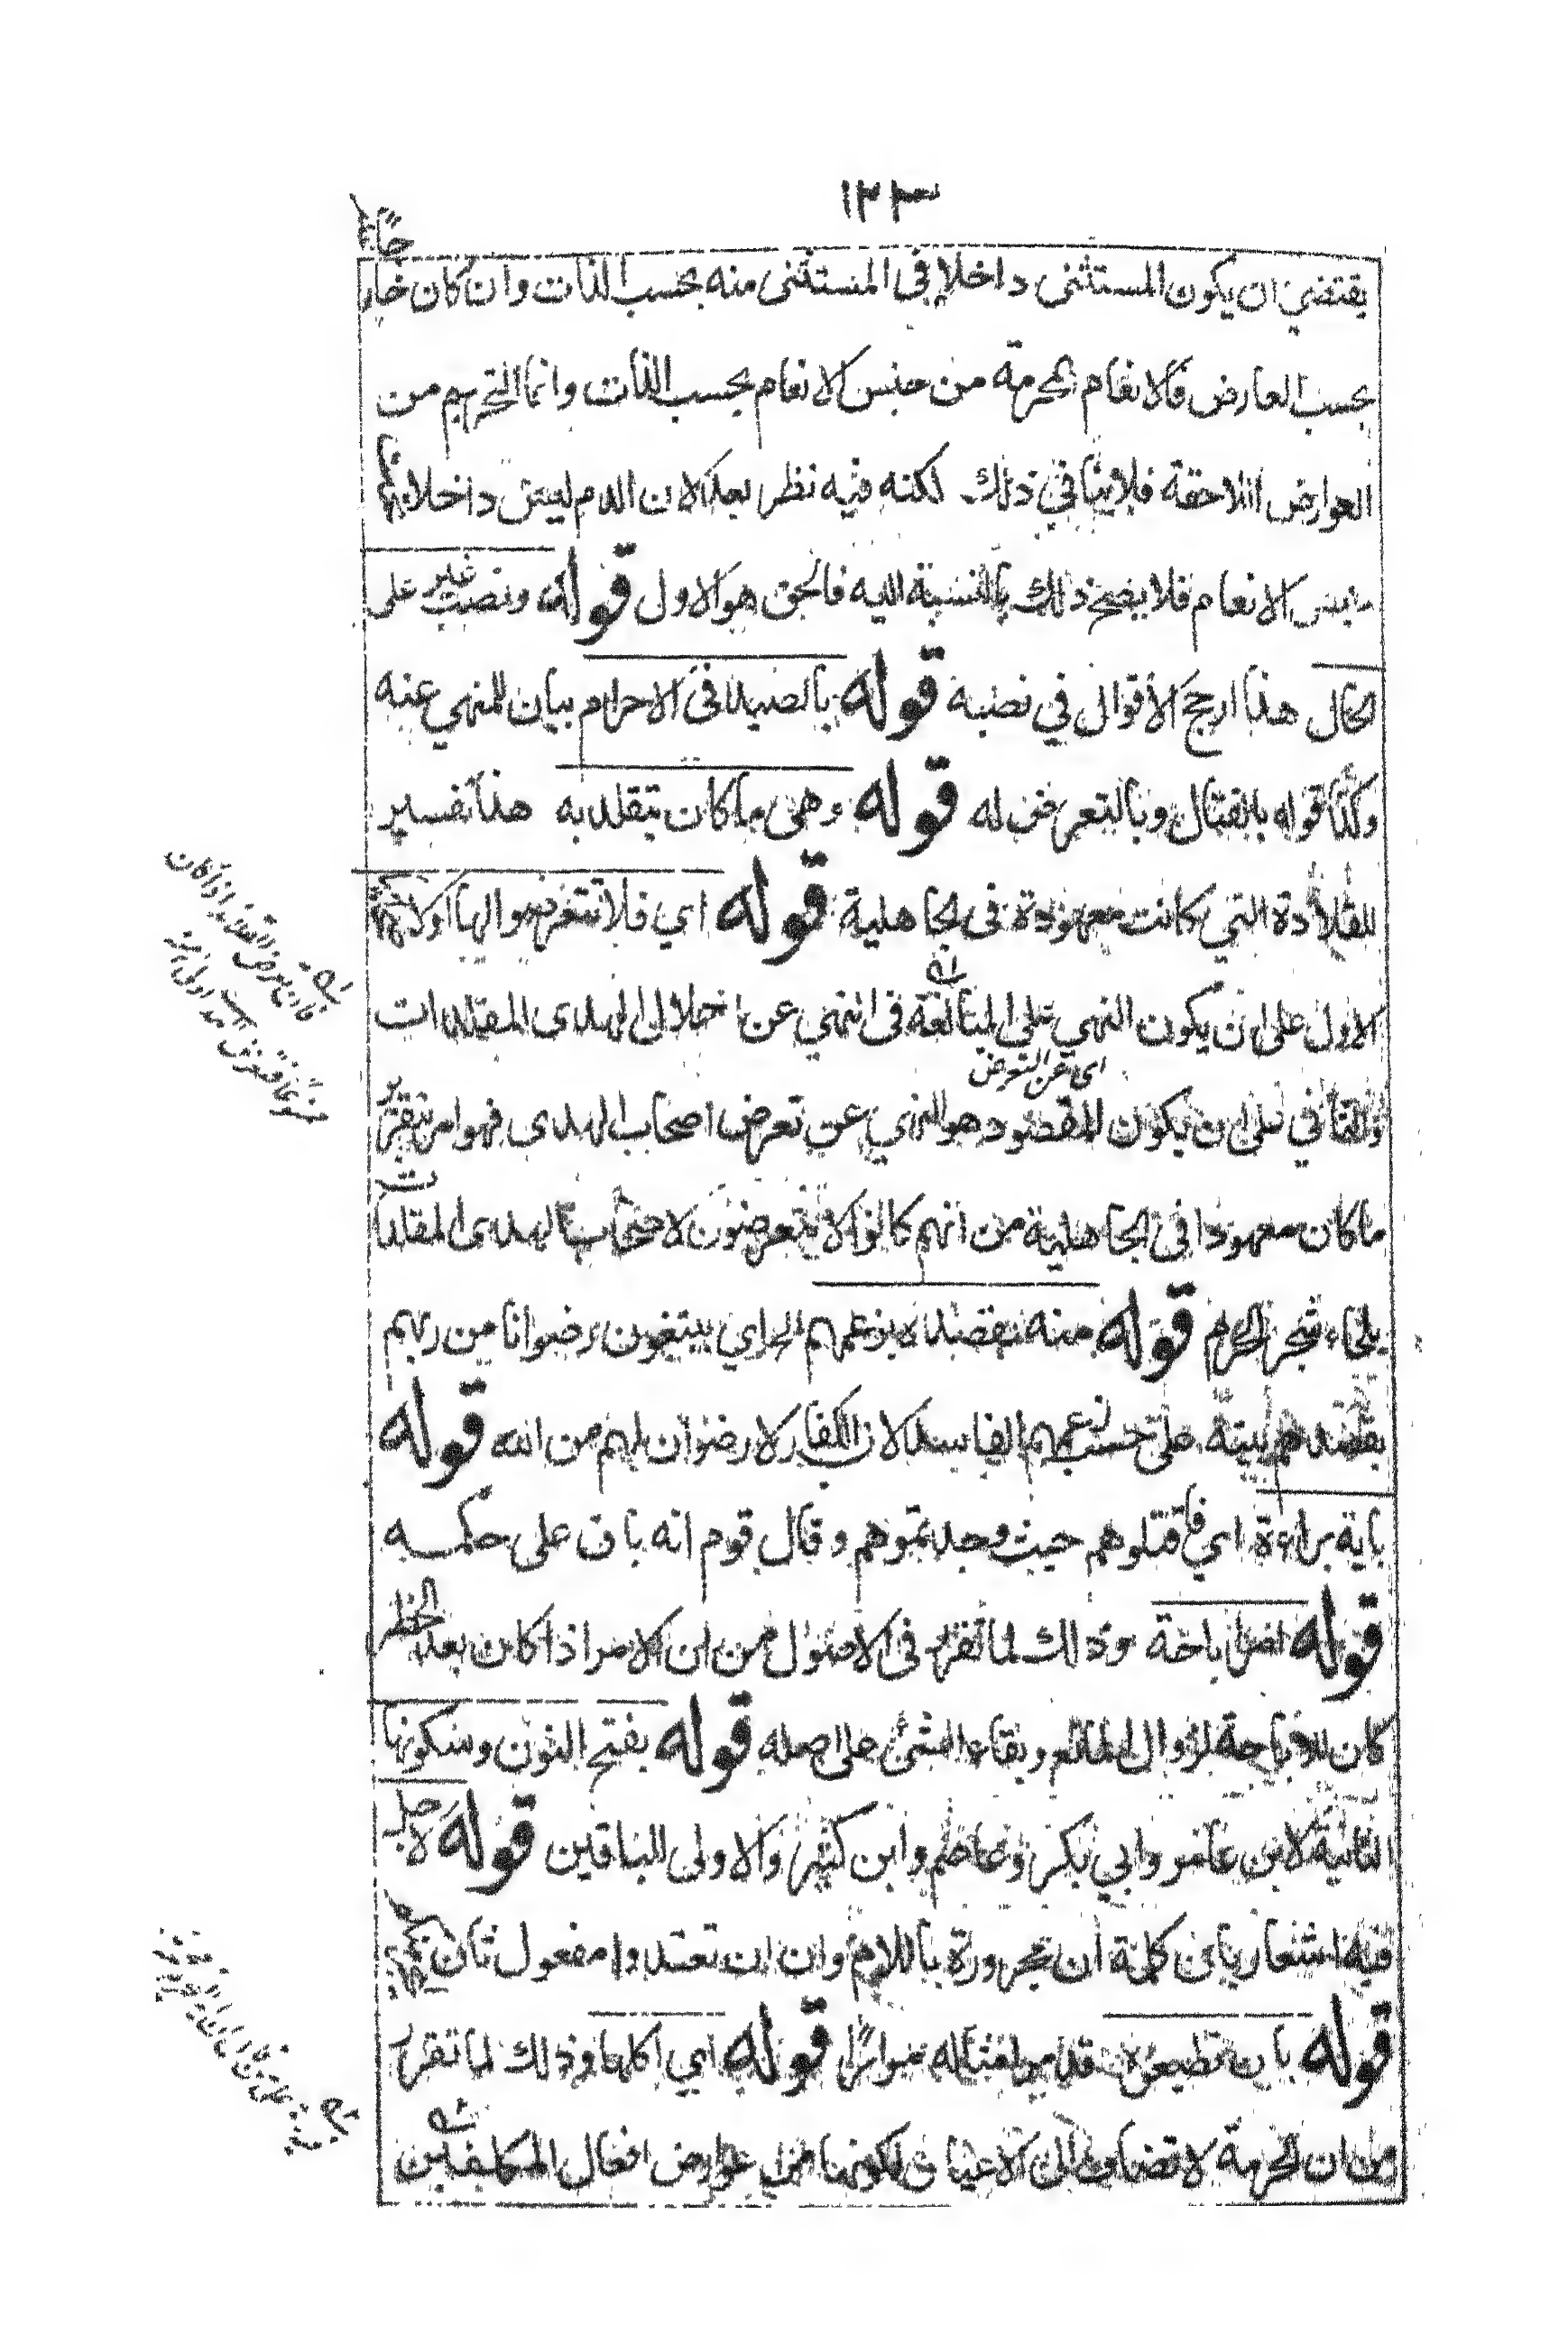 ١٢٣
يقتضي ان يكون المستثنى داخلا في المستثنى منه بحسب الذات وان كان خارجا
بحسب العارض فالانعام المحرمة من جنس الانعام بحسب الذات وانما التحريم من
العوارض اللاحقة فلا ينافي ذلك لكنه فيه نظر بعد لان الدم ليس داخلا
الانعام فلا يصح ذلك بالنسبة اليه فالحق هو الاول قوله ونصب غير على
الحال هذا ارجح الأقوال في نصبه قوله بالصيد في الاحرام بيان للمنهي عنه
وكذا قوله بالقتال وبالتعرض له قوله وهي ما كان يتقلد به هذا تفسير
للقلادة التي كانت معهودة في الجاهلية قوله اي فلا تتعرضوا لها او لاصحابها
الاول على ان يكون النهي على المبالغة في النهي عن احلال الهدى المقلدات
اي عن التعرض
والثاني على ان يكون المقصود هو النهي عن تعرض اصحاب الهدى فهو امر بتقرير
ما كان معهودا في الجاهلية من انهم كانوا لا يتعرضون لاصحاب الهدى المقلدات
بلحاء شجر الحرم قوله منه بقصده بزعمهم الخ اي يبتغون رضوانا من ربهم
بقصدهم بيته على حسب زعمهم الفاسد لان الكفار لا رضوان لهم من الله قوله
باية براءة اي فاقتلوهم حيث وجدتموهم وقال قوم انه باق على حكمه
قوله امر اباحة وذلك لما تقرر في الاصول من ان الامر اذا كان بعد الحظر
كان للاباحة لزوال المانع وبقاء الشئ على اصله قوله بفتح النون وسكونها
الثانية لابن عامر وابي بكر وعاصم وابن كثير والاولى للباقين قوله لاجل
فيه اشعار بان كلمة ان مجرورة باللام وان ان تعتدوا مفعول ثان
قوله قوله اي اكلها وذلك لما تقرر
من ان الحرمة لا تضاف الى الاعيان لكونها من عوارض افعال المكلفين